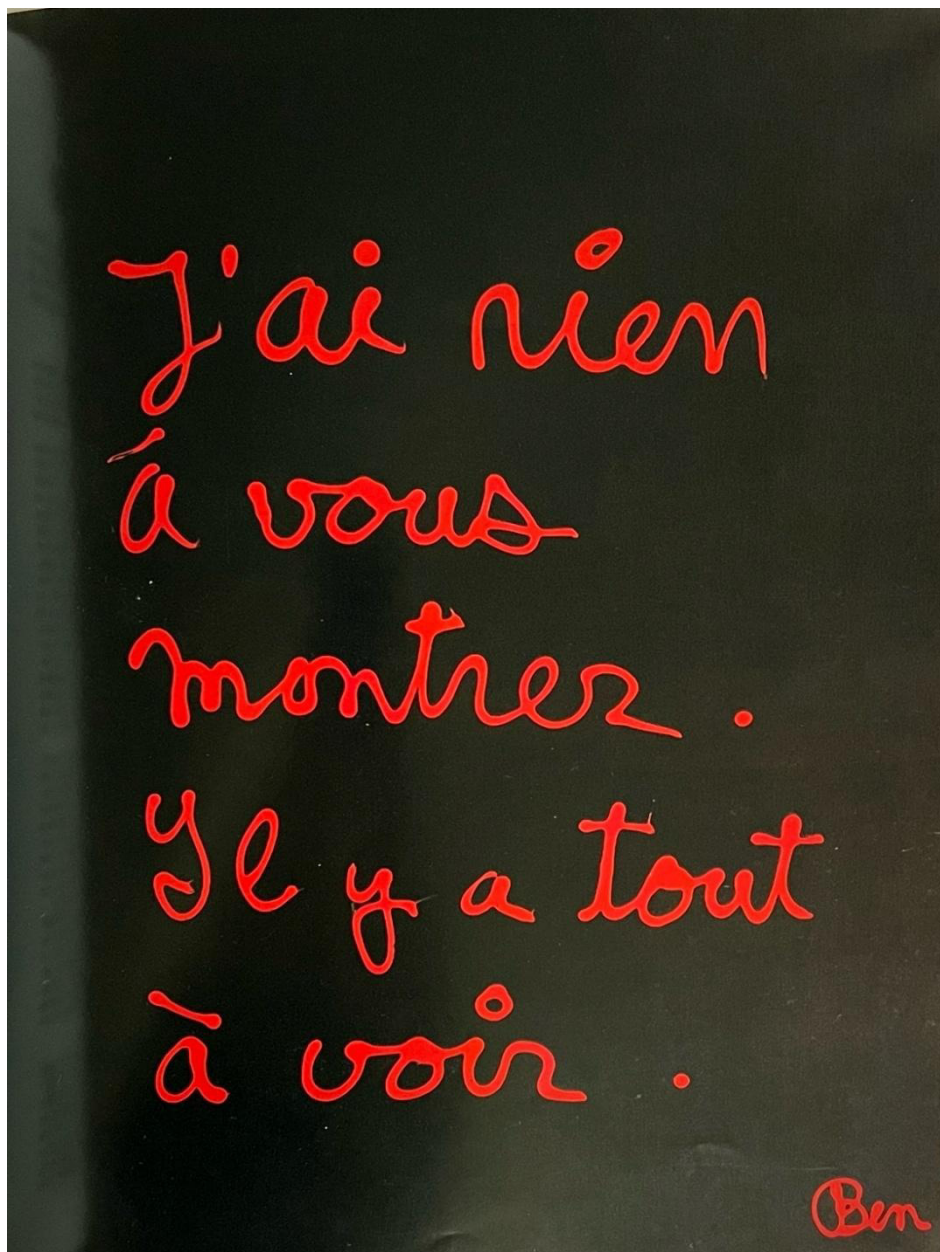 J'ai rien
á vous
montrer.
Il y a tout
à voir.
Ben